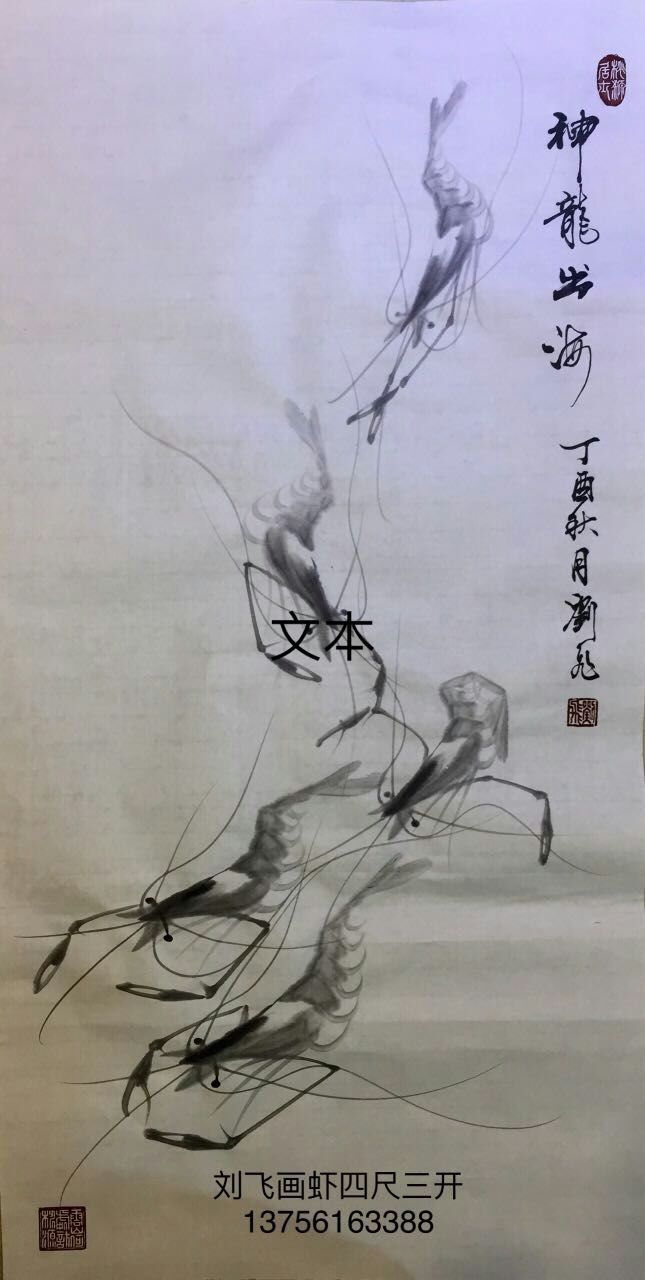 神龍出海
丁酉秋月劉飛
劉飛
文本
刘飞画虾四尺三开
13756163388